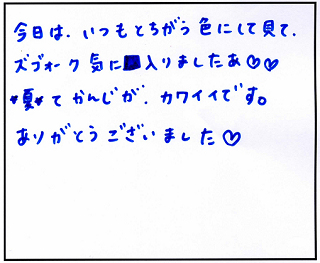 今日は、いつもとちがう色にして見て、
ズゴォーク気に入りましたあ♡♡
*夏*てかんじが、カワイイです。
ありがとうございました♡